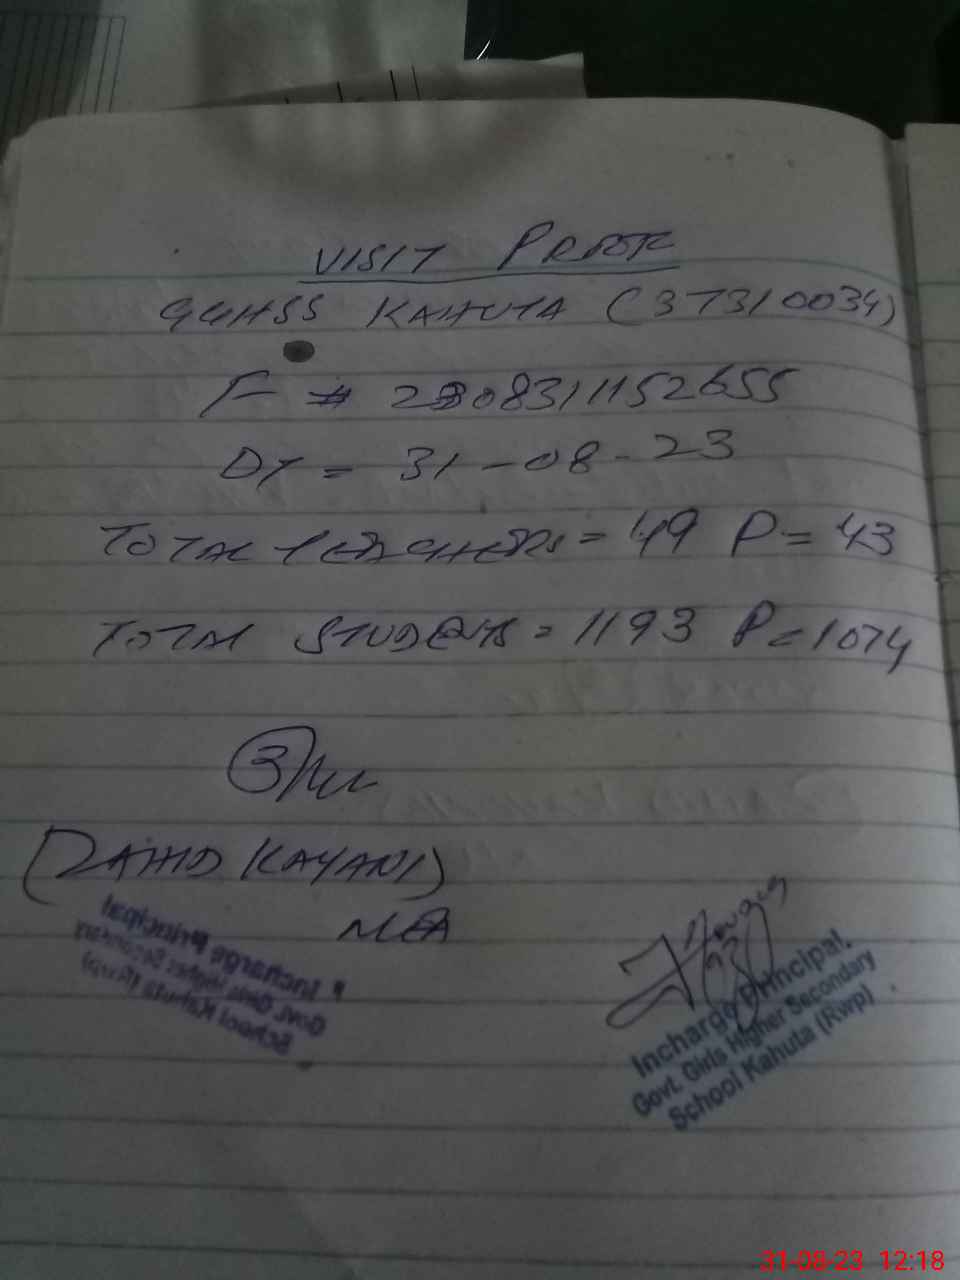 VISIT PROOF
GGHSS KAHUTA (37310034)
F # 2308311152655
DT = 31-08-23
TOTAL TEACHERS = 49 P = 43
TOTAL STUDENTS = 1193 P = 1074
(ZAHID KAYANI)
MEA
Incharge Principal
Govt. Girls Higher Secondary
School Kahuta (Rwp)
Incharge Principal.
Govt. Girls Higher Secondary
School Kahuta (Rwp)
31-08-23 12:18